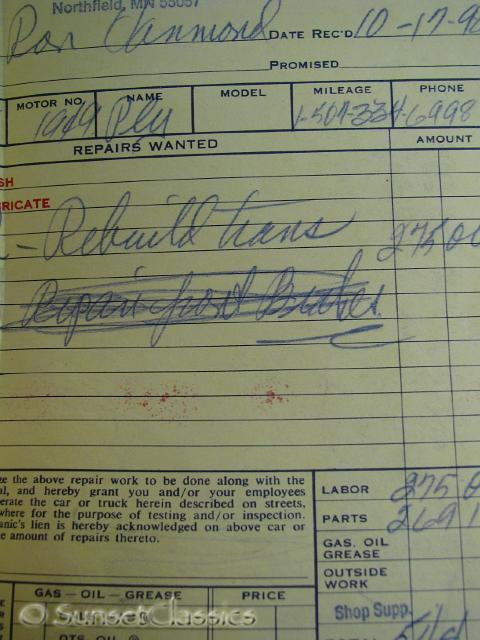 Northfield, MN 55057
Ron DATE REC'D 10-17-9
PROMISED
MOTOR NO. NAME MODEL MILEAGE PHONE
1949 Ply 1-507-334-6998
REPAIRS WANTED AMOUNT
SH
RICATE
- Rebuild trans 275 00
Repair front Brakes
ze the above repair work to be done along with the
al, and hereby grant you and/or your employees
erate the car or truck herein described on streets,
where for the purpose of testing and/or inspection.
anic's lien is hereby acknowledged on above car or
e amount of repairs thereto.
LABOR 275 0
PARTS 269 1
GAS, OIL
GREASE
OUTSIDE
WORK
Shop Supp.
GAS - OIL - GREASE PRICE
© SunsetClassics